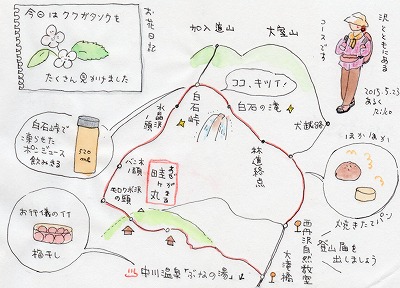 お花日記
今日はクワガタソウを
たくさん見かけました
加入道山
大室山
沢とともにある
コースです
2015.5.23
あるく
ココ、キツイ!
白石峠
白石の滝
犬越路
水晶沢ノ頭
白石峠で
凍らせた
ポンジュース
飲みきる
520ml
バン木ノ頭
モロクボ沢の頭
あぜがまる
畦ヶ丸
林道終点
ほかほか
焼きたてパン
お行儀のイイ
梅干し
西丹沢自然教室
登山届を
出しましょう
大滝橋
♨中川温泉「ぶなの湯」